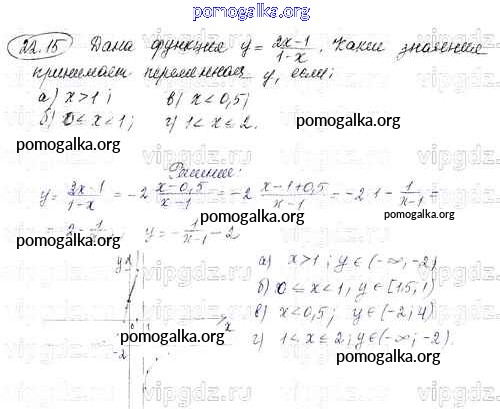 pomogalka.org
22.15 Дана функция y = 2x-1/1-x. Какие значения
принимает переменная y, если:
а) x>1; в) x<0,5;
б) 0≤x<1; г) 1<x≤2.
pomogalka.org
Решение:
y = 2x-1/1-x = -2 x-0,5/x-1 = -2 x-1+0,5/x-1 = -2·1 - 1/x-1 =
pomogalka.org
= 2 - 1/x-1; y = -1/x-1 - 2
pomogalka.org
y
а) x>1; y∈(-∞,-2)
б) 0≤x<1, y∈[1,5; 1)
x
в) x<0,5; y∈(-2; 4)
pomogalka.org
-2
г) 1<x≤2; y∈(-∞; -2).
pomogalka.org
vipgdz.ru